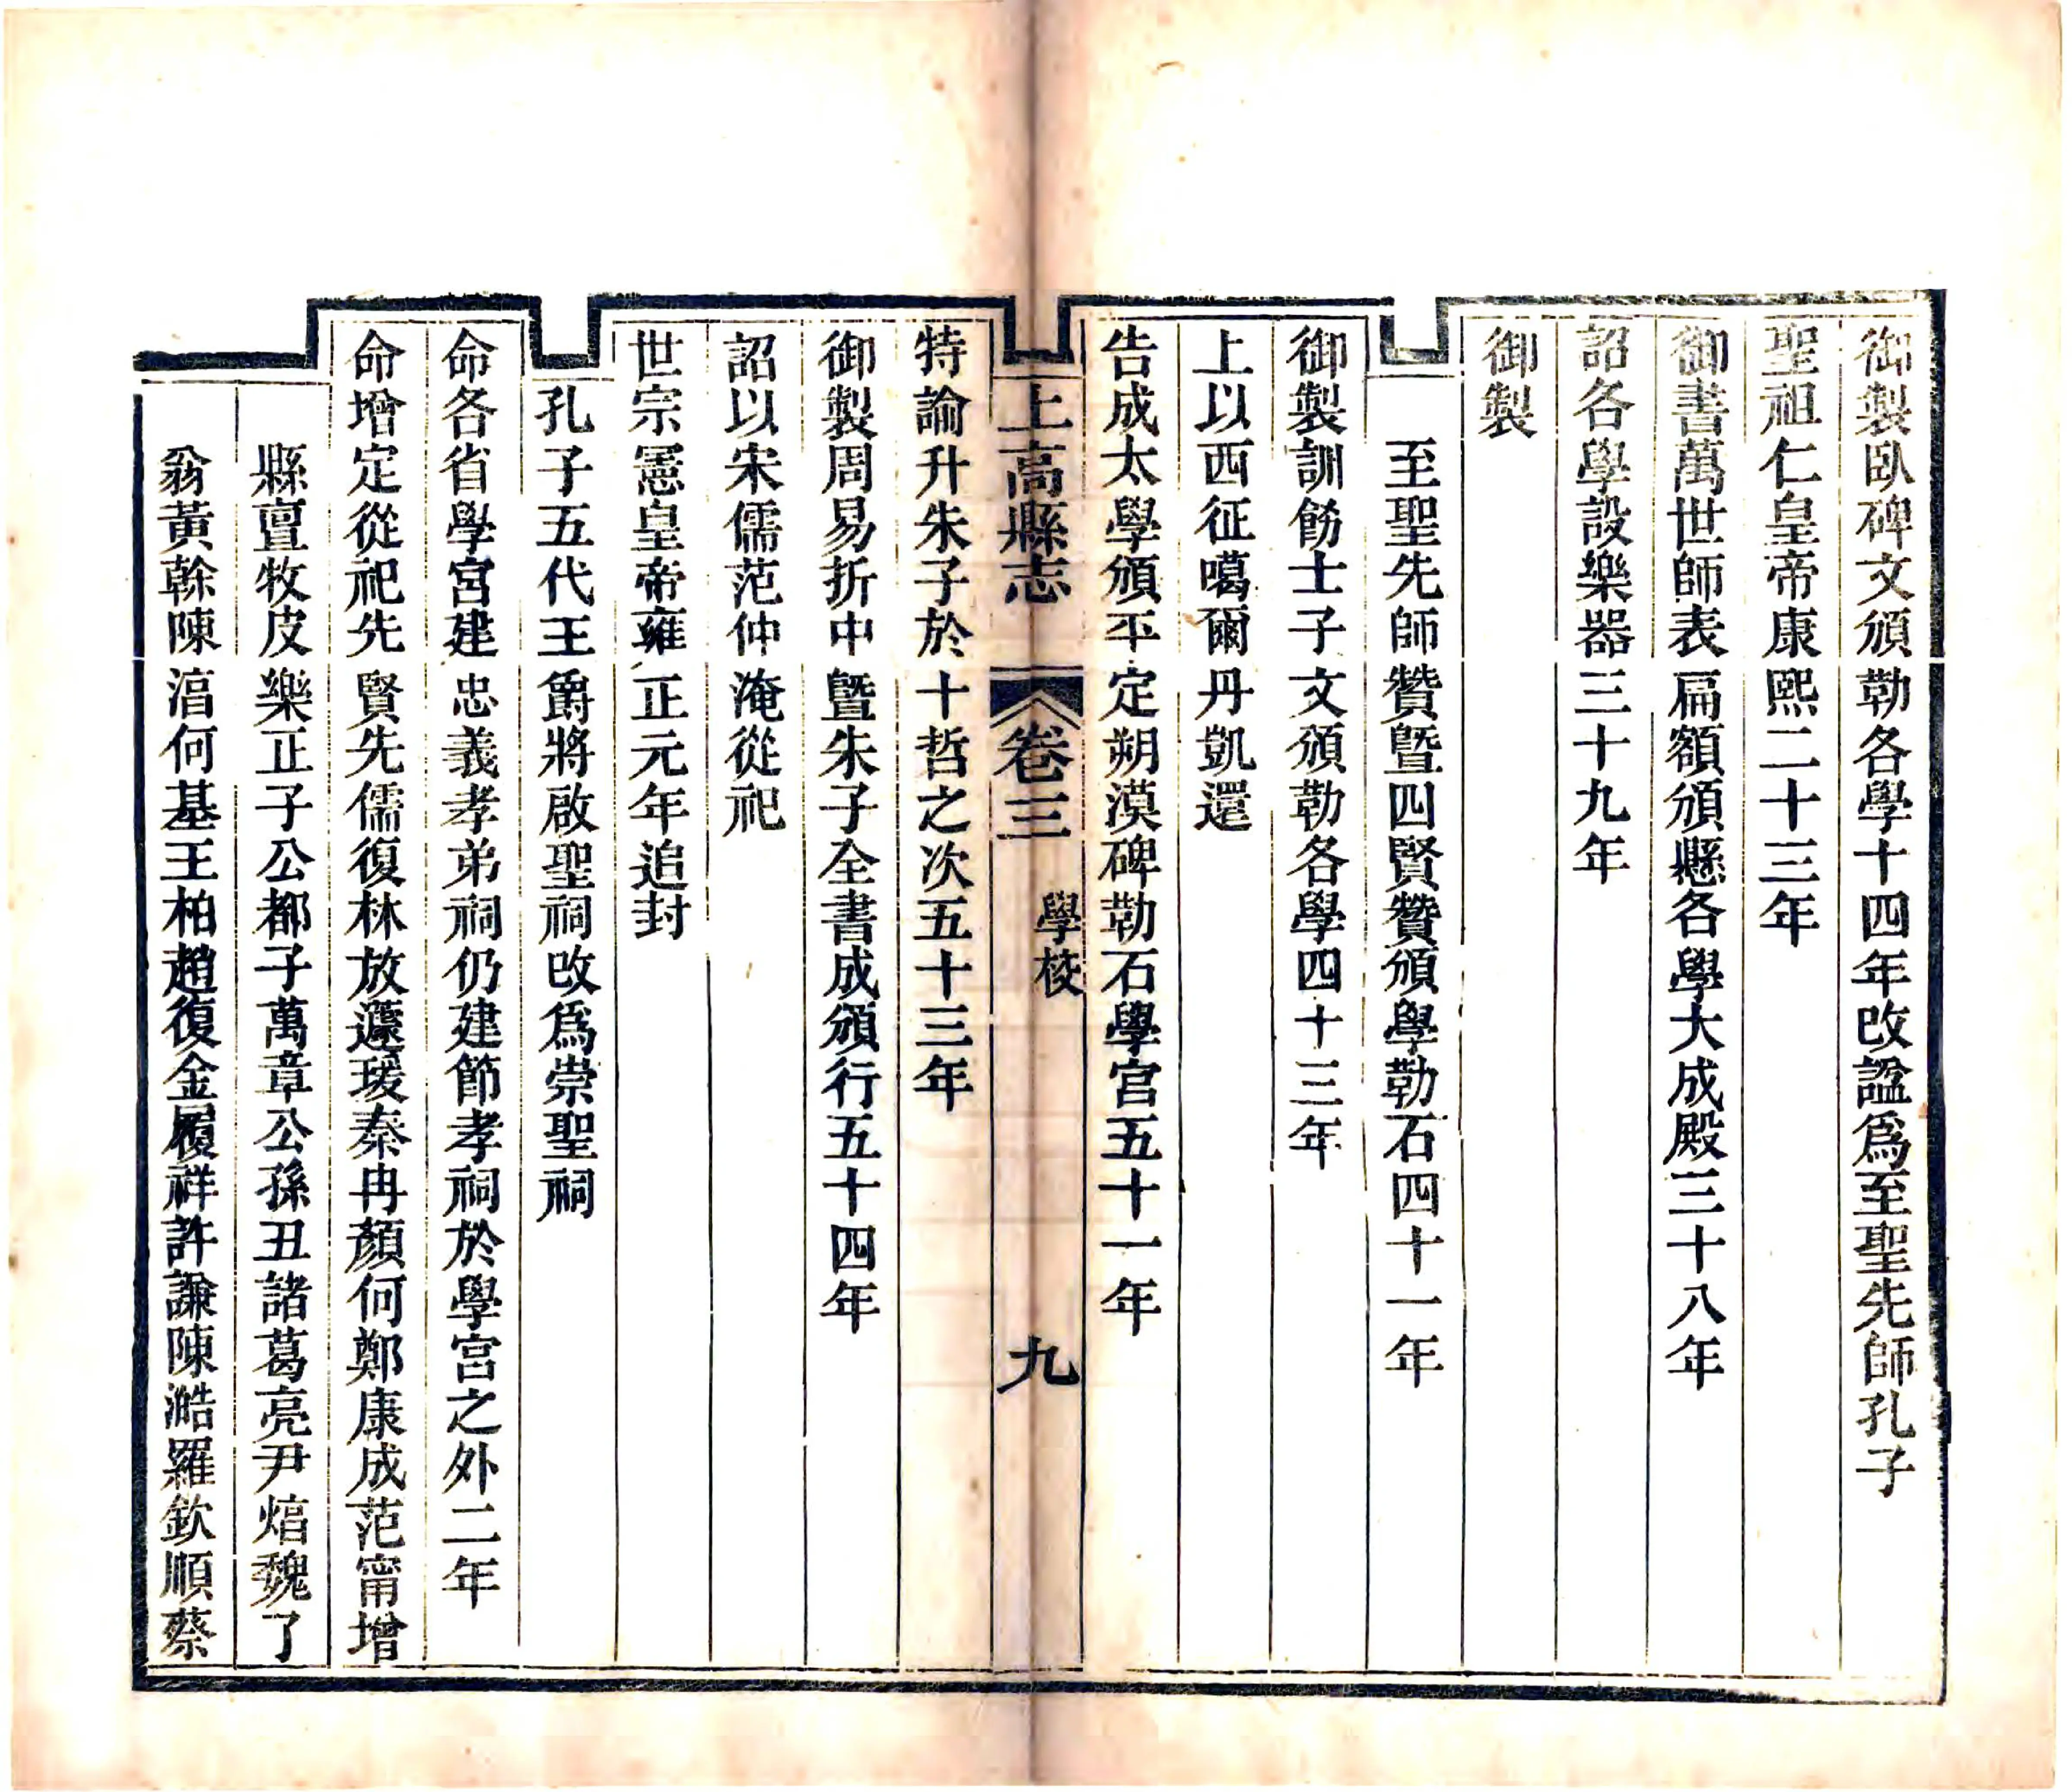 御製臥碑文頒勒各學十四年改諡爲至聖先師孔子
聖祖仁皇帝康熙二十三年
御書萬世師表扁額頒懸各學大成殿三十八年
詔各學設樂器三十九年
御製
至聖先師贊暨四賢贊頒學勒石四十一年
御製訓飭士子文頒勒各學四十三年
上以西征噶爾丹凱還
告成太學頒平定朔漠碑勒石學宮五十一年
上高縣志
卷三
學校
九
特論升朱子於十哲之次五十三年
御製周易折中暨朱子全書成頒行五十四年
詔以宋儒范仲淹從祀
世宗憲皇帝雍正元年追封
孔子五代王爵將啟聖祠改爲崇聖祠
命各省學宮建忠義孝弟祠仍建節孝祠於學宮之外二年
命增定從祀先賢先儒復林放蘧瑗秦冉顏何鄭康成范甯增
縣亶牧皮樂正子公都子萬章公孫丑諸葛亮尹焞魏了
翁黃榦陳淳何基王柏趙復金履祥許謙陳澔羅欽順蔡